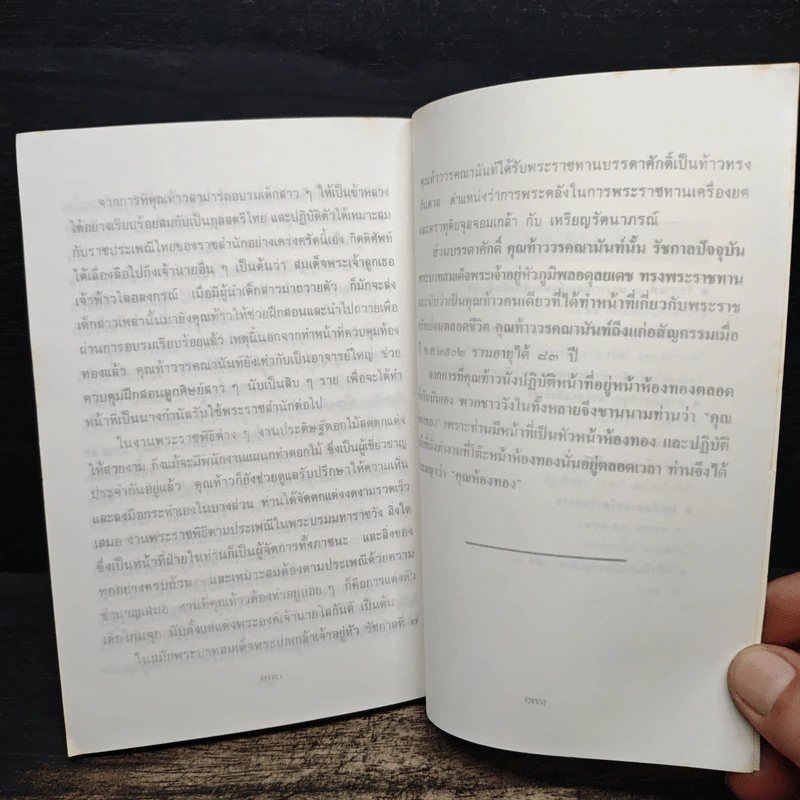 จากการที่คุณท้าวสามารถอบรมเด็กสาว ๆ ให้เป็นข้าหลวง
ได้อย่างเรียบร้อยสมกับเป็นกุลสตรีไทย และปฏิบัติตัวได้เหมาะสม
กับราชประเพณีไทยของราชสำนักอย่างเคร่งครัดนี้เอง กิตติศัพท์
ได้เลื่องลือไปถึงเจ้านายอื่น ๆ เป็นต้นว่า สมเด็จพระเจ้าลูกเธอ
เจ้าฟ้าวไลอลงกรณ์ เมื่อมีผู้นำเด็กสาวมาถวายตัว ก็มักจะส่ง
เด็กสาวเหล่านั้นมายังคุณท้าวให้ช่วยฝึกสอนและนำไปถวายเพื่อ
ผ่านการอบรมเรียบร้อยแล้ว เหตุนี้นอกจากทำหน้าที่ควบคุมห้อง
ทองแล้ว คุณท้าววรคณานันท์ยังเท่ากับเป็นอาจารย์ใหญ่ ช่วย
ควบคุมฝึกสอนลูกศิษย์สาว ๆ นับเป็นสิบ ๆ ราย เพื่อจะได้ทำ
หน้าที่เป็นนางกำนัลรับใช้พระราชสำนักต่อไป
ในงานพระราชพิธีต่าง ๆ งานประดิษฐ์ดอกไม้สดตกแต่ง
ให้สวยงาม ถึงแม้จะมีพนักงานแผนกทำดอกไม้ ซึ่งเป็นผู้เชี่ยวชาญ
ประจำกันอยู่แล้ว คุณท้าวก็ยังช่วยดูแลรับปรึกษาให้ความเห็น
และลงมือกระทำเองในบางส่วน ท่านได้จัดตกแต่งงดงามรวดเร็ว
เสมอ งานพระราชพิธีตามประเพณีในพระบรมมหาราชวัง สิ่งใด
ซึ่งเป็นหน้าที่ฝ่ายในท่านก็เป็นผู้จัดการทั้งภาชนะ และสิ่งของ
ทุกอย่างครบถ้วน และเหมาะสมต้องตามประเพณีด้วยความ
ชำนาญเสมอ งานที่คุณท้าวต้องทำอยู่บ่อย ๆ ก็คือการแต่งตัว
เด็กโกนจุก นับตั้งแต่แต่งพระองค์เจ้านายโสกันต์ เป็นต้น
ในสมัยพระบาทสมเด็จพระปกเกล้าเจ้าอยู่หัว รัชกาลที่ ๗
คุณท้าววรคณานันท์ได้รับพระราชทานบรรดาศักดิ์เป็นท้าวทรง
กันดาล ตำแหน่งว่าการพระคลังในการพระราชทานเครื่องยศ
และตราทุติยจุลจอมเกล้า กับ เหรียญรัตนาภรณ์
ส่วนบรรดาศักดิ์ คุณท้าววรคณานันท์นั้น รัชกาลปัจจุบัน
พระบาทสมเด็จพระเจ้าอยู่หัวภูมิพลอดุลยเดช ทรงพระราชทาน
และนับว่าเป็นคุณท้าวคนเดียวที่ได้ทำหน้าที่เกี่ยวกับพระราช
พิธีต่อมาตลอดชีวิต คุณท้าววรคณานันท์ถึงแก่อสัญกรรมเมื่อ
ปี พ.ศ.๒๕๐๒ รวมอายุได้ ๘๓ ปี
จากการที่คุณท้าวนั่งปฏิบัติหน้าที่อยู่หน้าห้องทองตลอด
นั่นเอง พวกชาววังในทั้งหลายจึงขานนามท่านว่า "คุณ
ห้องทอง" เพราะท่านมีหน้าที่เป็นหัวหน้าห้องทอง และปฏิบัติ
หน้าที่นั่งทำงานที่โต๊ะหน้าห้องทองนั่นอยู่ตลอดเวลา ท่านจึงได้
"คุณห้องทอง"